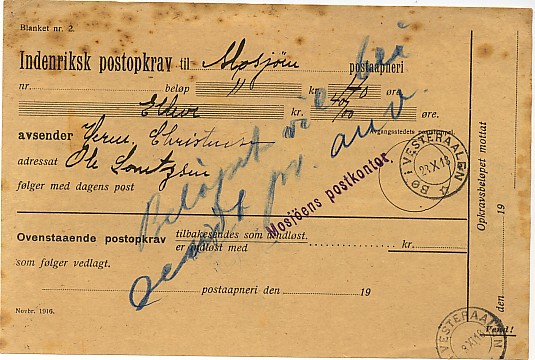 Blanket nr. 2.
Indenriksk postopkrav til Mosjøen postaapneri
nr. beløp 11 kr. 40 øre
Elleve kr. 40/00 øre.
avsender Herm. Christensen
Avgangsstedets poststempel.
adressat Ole
følger med dagens post
BØ I VESTERAALEN
22 X 18
Beløpet vil bli sendt pr. anv.
Mosjøens postkontor
Ovenstaaende postopkrav tilbakesendes som uindløst.
er indløst med kr.
som følger vedlagt.
postaapneri den 19
Novbr. 1916.
Opkravsbeløpet mottat
den 19
Vend!
VESTERAALEN